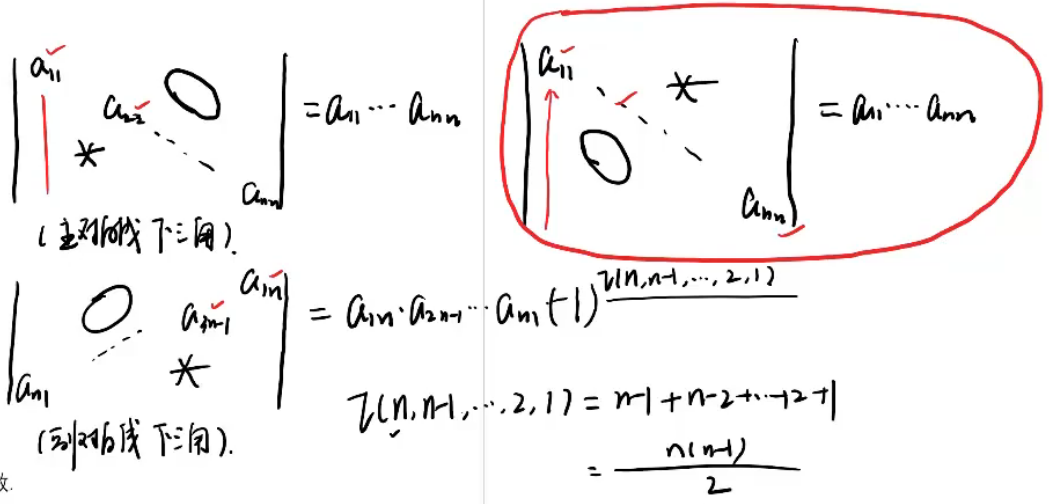 | a₁₁ a₂₂ * 0 aₙₙ | = a₁₁ ⋯ aₙₙ
(主对角线 下三角).
| a₁₁ * 0 aₙₙ | = a₁₁ ⋯ aₙₙ
| 0 a₁ₙ a₂ₙ₋₁ * aₙ₁ | = a₁ₙ·a₂ₙ₋₁ ⋯ aₙ₁ (-1)^τ(n,n-1,⋯,2,1)
(副对角线 下三角).
τ(n,n-1,⋯,2,1) = n-1+n-2+⋯+2+1
= n(n-1)/2